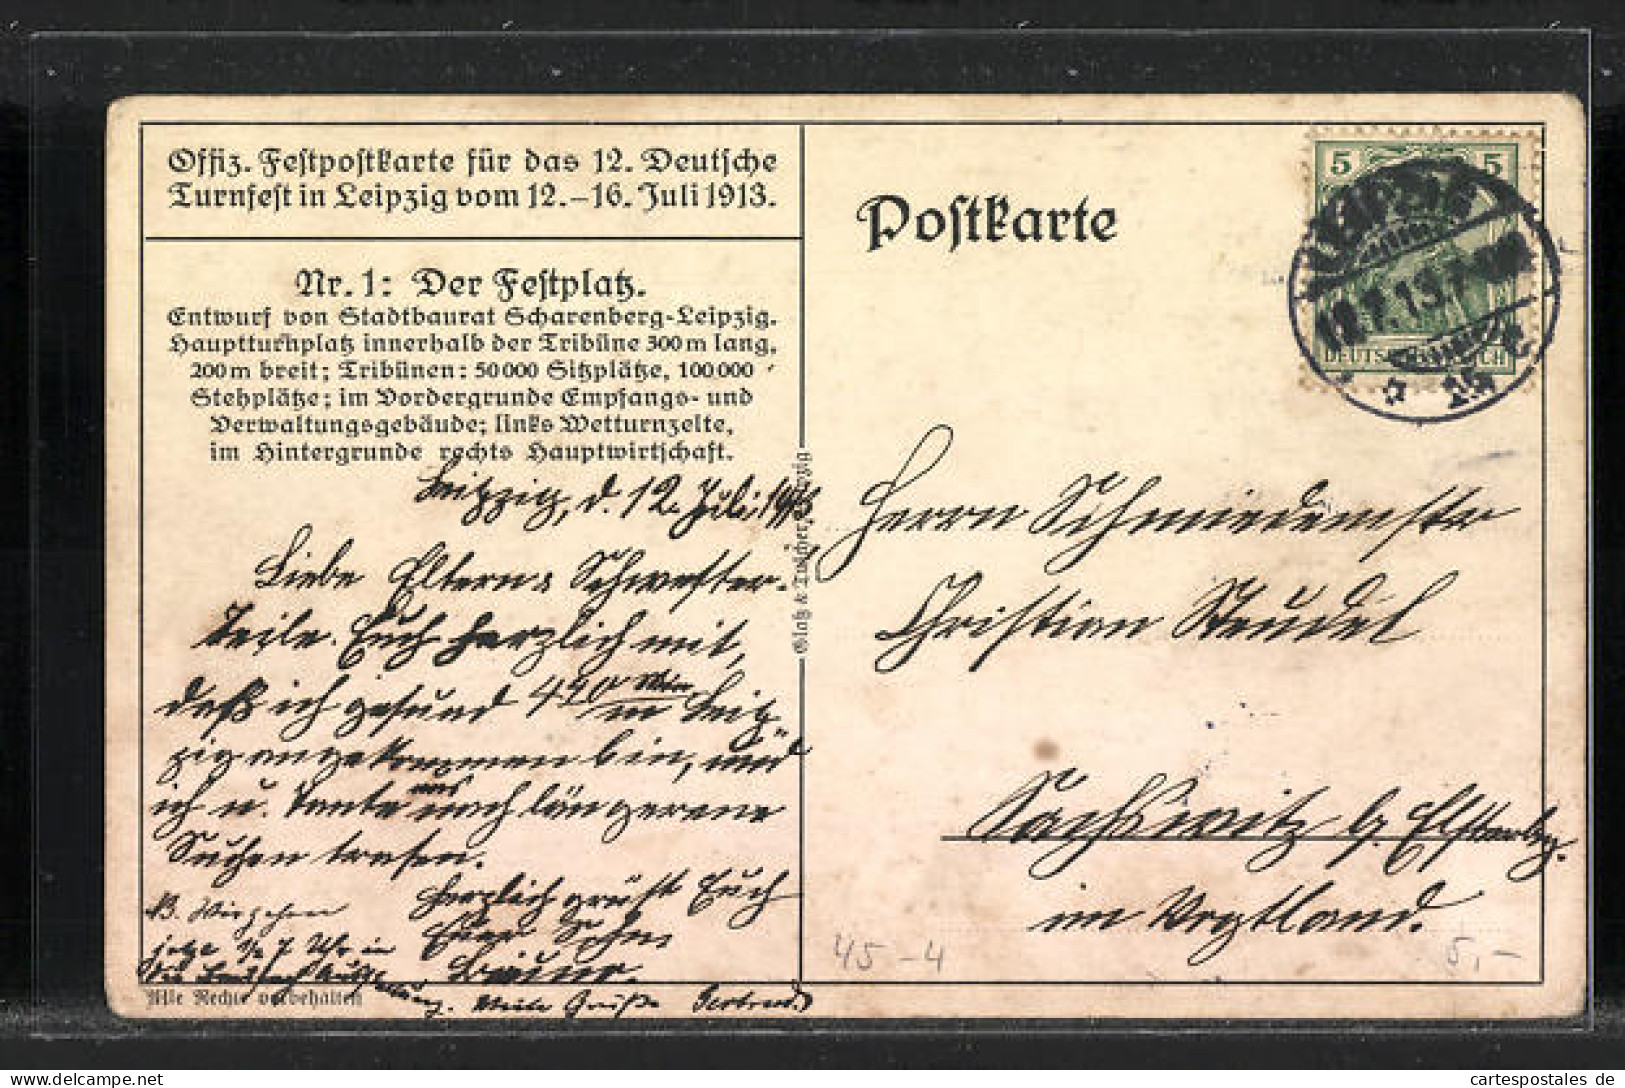 Offiz. Festpostkarte für das 12. Deutsche
Turnfest in Leipzig vom 12.–16. Juli 1913.
Nr. 1: Der Festplatz.
Entwurf von Stadtbaurat Scharenberg-Leipzig.
Hauptturnplatz innerhalb der Tribüne 300 m lang,
200 m breit; Tribünen: 50 000 Sitzplätze, 100 000
Stehplätze; im Vordergrunde Empfangs- und
Verwaltungsgebäude; links Wetturnzelte,
im Hintergrunde rechts Hauptwirtschaft.
Leipzig, d. 12. Juli 1913
Liebe Eltern u. Schwester.
Teile Euch herzlich mit,
daß ich gesund 4 40 Min in Leip
zig angekommen bin, und
ich u. Tante uns nach längerene
Suchen trafen.
Herzlich grüßt Euch
Euer Sohn
NB. Wir gehen
jetzt 1/2 7 Uhr in
die
Viele Grüße Gertrud
Alle Rechte vorbehalten
Glatz & Tuscher, Leipzig
Postkarte
5 5
DEUTSCHES REICH
LEIPZIG
12.7.13.7
* a 25 c
Herrn Schmiedemstr
Christian Steudel
Sachswitz b. Elsterbg.
im Vogtland.
45 – 4
5,–
cartespostales de